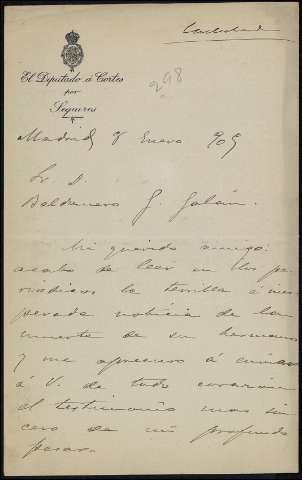 Contestada
298
El Diputado á Cortes
por
Sequeros
Madrid 8 Enero 909
Sr D.
Baldomero G. Galán.
Mi querido amigo:
acabo de leer en los pe-
riódicos la terrible é ines-
perada noticia de la
muerte de su hermano
y me apresuro á enviar
á V. de todo corazón
el testimonio mas sin
cero de mi profundo
pesar.